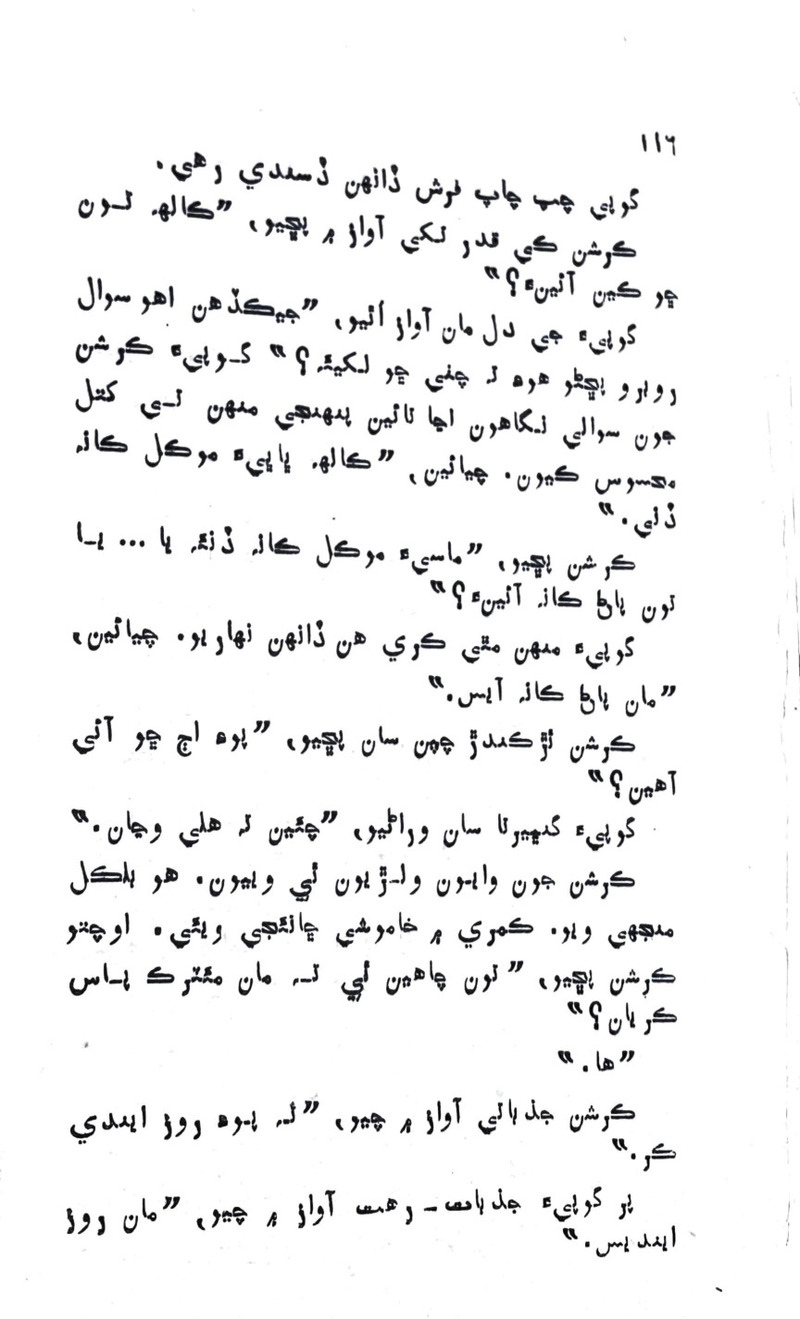 ١١٦
گوپي چپ چاپ فرش ڏانهن ڏسندي رهي.
ڪرشن ڪي قدر تکي آواز ۾ پڇيو، ”ڪالهه تون
ڇو ڪين آئينءَ؟“
گوپيءَ جي دل مان آواز اُٿيو، ”جيڪڏهن اهو سوال
روبرو پڇڻو هوءِ ته چٺي ڇو لکيئه؟“ گوپيءَ ڪرشن
جون سوالي نگاهون اڃا تائين پنهنجي منهن تي کتل
محسوس ڪيون. چيائين، ”ڪالهه ڀاڀيءَ موڪل ڪانه
ڏني.“
ڪرشن پڇيو، ”ماسيءَ موڪل ڪانه ڏنئه يا ... يا
تون پاڻ ڪانه آئينءَ؟“
گوپيءَ منهن مٿي ڪري هن ڏانهن نهاريو. چيائين،
”مان پاڻ ڪانه آيس.“
ڪرشن ٿڙڪندڙ چپن سان پڇيو، ”پوءِ اڄ ڇو آئي
آهين؟“
گوپيءَ گنڀيرتا سان وراڻيو، ”چئين ته هلي وڃان.“
ڪرشن جون وايون ولڙيون ٿي ويون. هو بلڪل
منجهي ويو. ڪمري ۾ خاموشي ڇانئجي ويئي. اوچتو
ڪرشن پڇيو، ”تون چاهين ٿي ته مان مئٽرڪ پاس
ڪريان؟“
”ها.“
ڪرشن جذباتي آواز ۾ چيو، ”ته پوءِ روز ايندي
ڪر.“
پر گوپيءَ جذبات-رهت آواز ۾ چيو، ”مان روز
اينديس.“